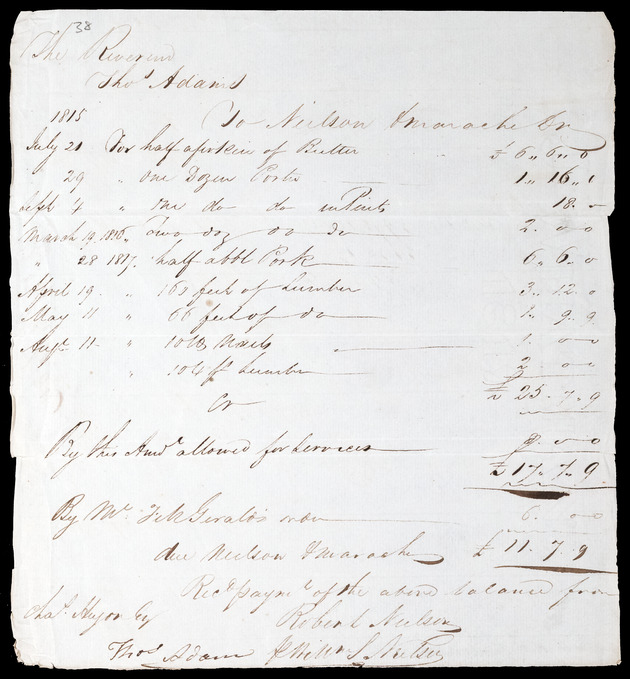 38
The Reverend
Thos Adams
1815 To Neilson & marache Dr
July 21 For half a firkin of Butter £ 6 ,, 6 ,, 0
" 29 " one Dozen Porter 1 ,, 16 ,,
Sept 4 " one do do in Pints 18 -
March 19 1816 " Two doz do do 2. 0 0
" 28 1817. half a bbl Pork 6 ,, 6 ,, 0
April 19 " feet of Lumber 3. 12. 0
May 11 " 66 feet of do 1. 9. 9
Augt 11 " 10 lbs Nails 1. 0 0
" 104 ft Lumber 2 0 0
£ 25 . 7 . 9
Cr
By this Amot allowed for Services 8. 0 0
£ 17 ,, 7 ,, 9
By Mr FitzGeralds order 6. 0 0
due Neilson & marache £ 11. 7. 9
Recd paymt of the above balance from
Chas Robert Neilson
Thos Adams Neilson